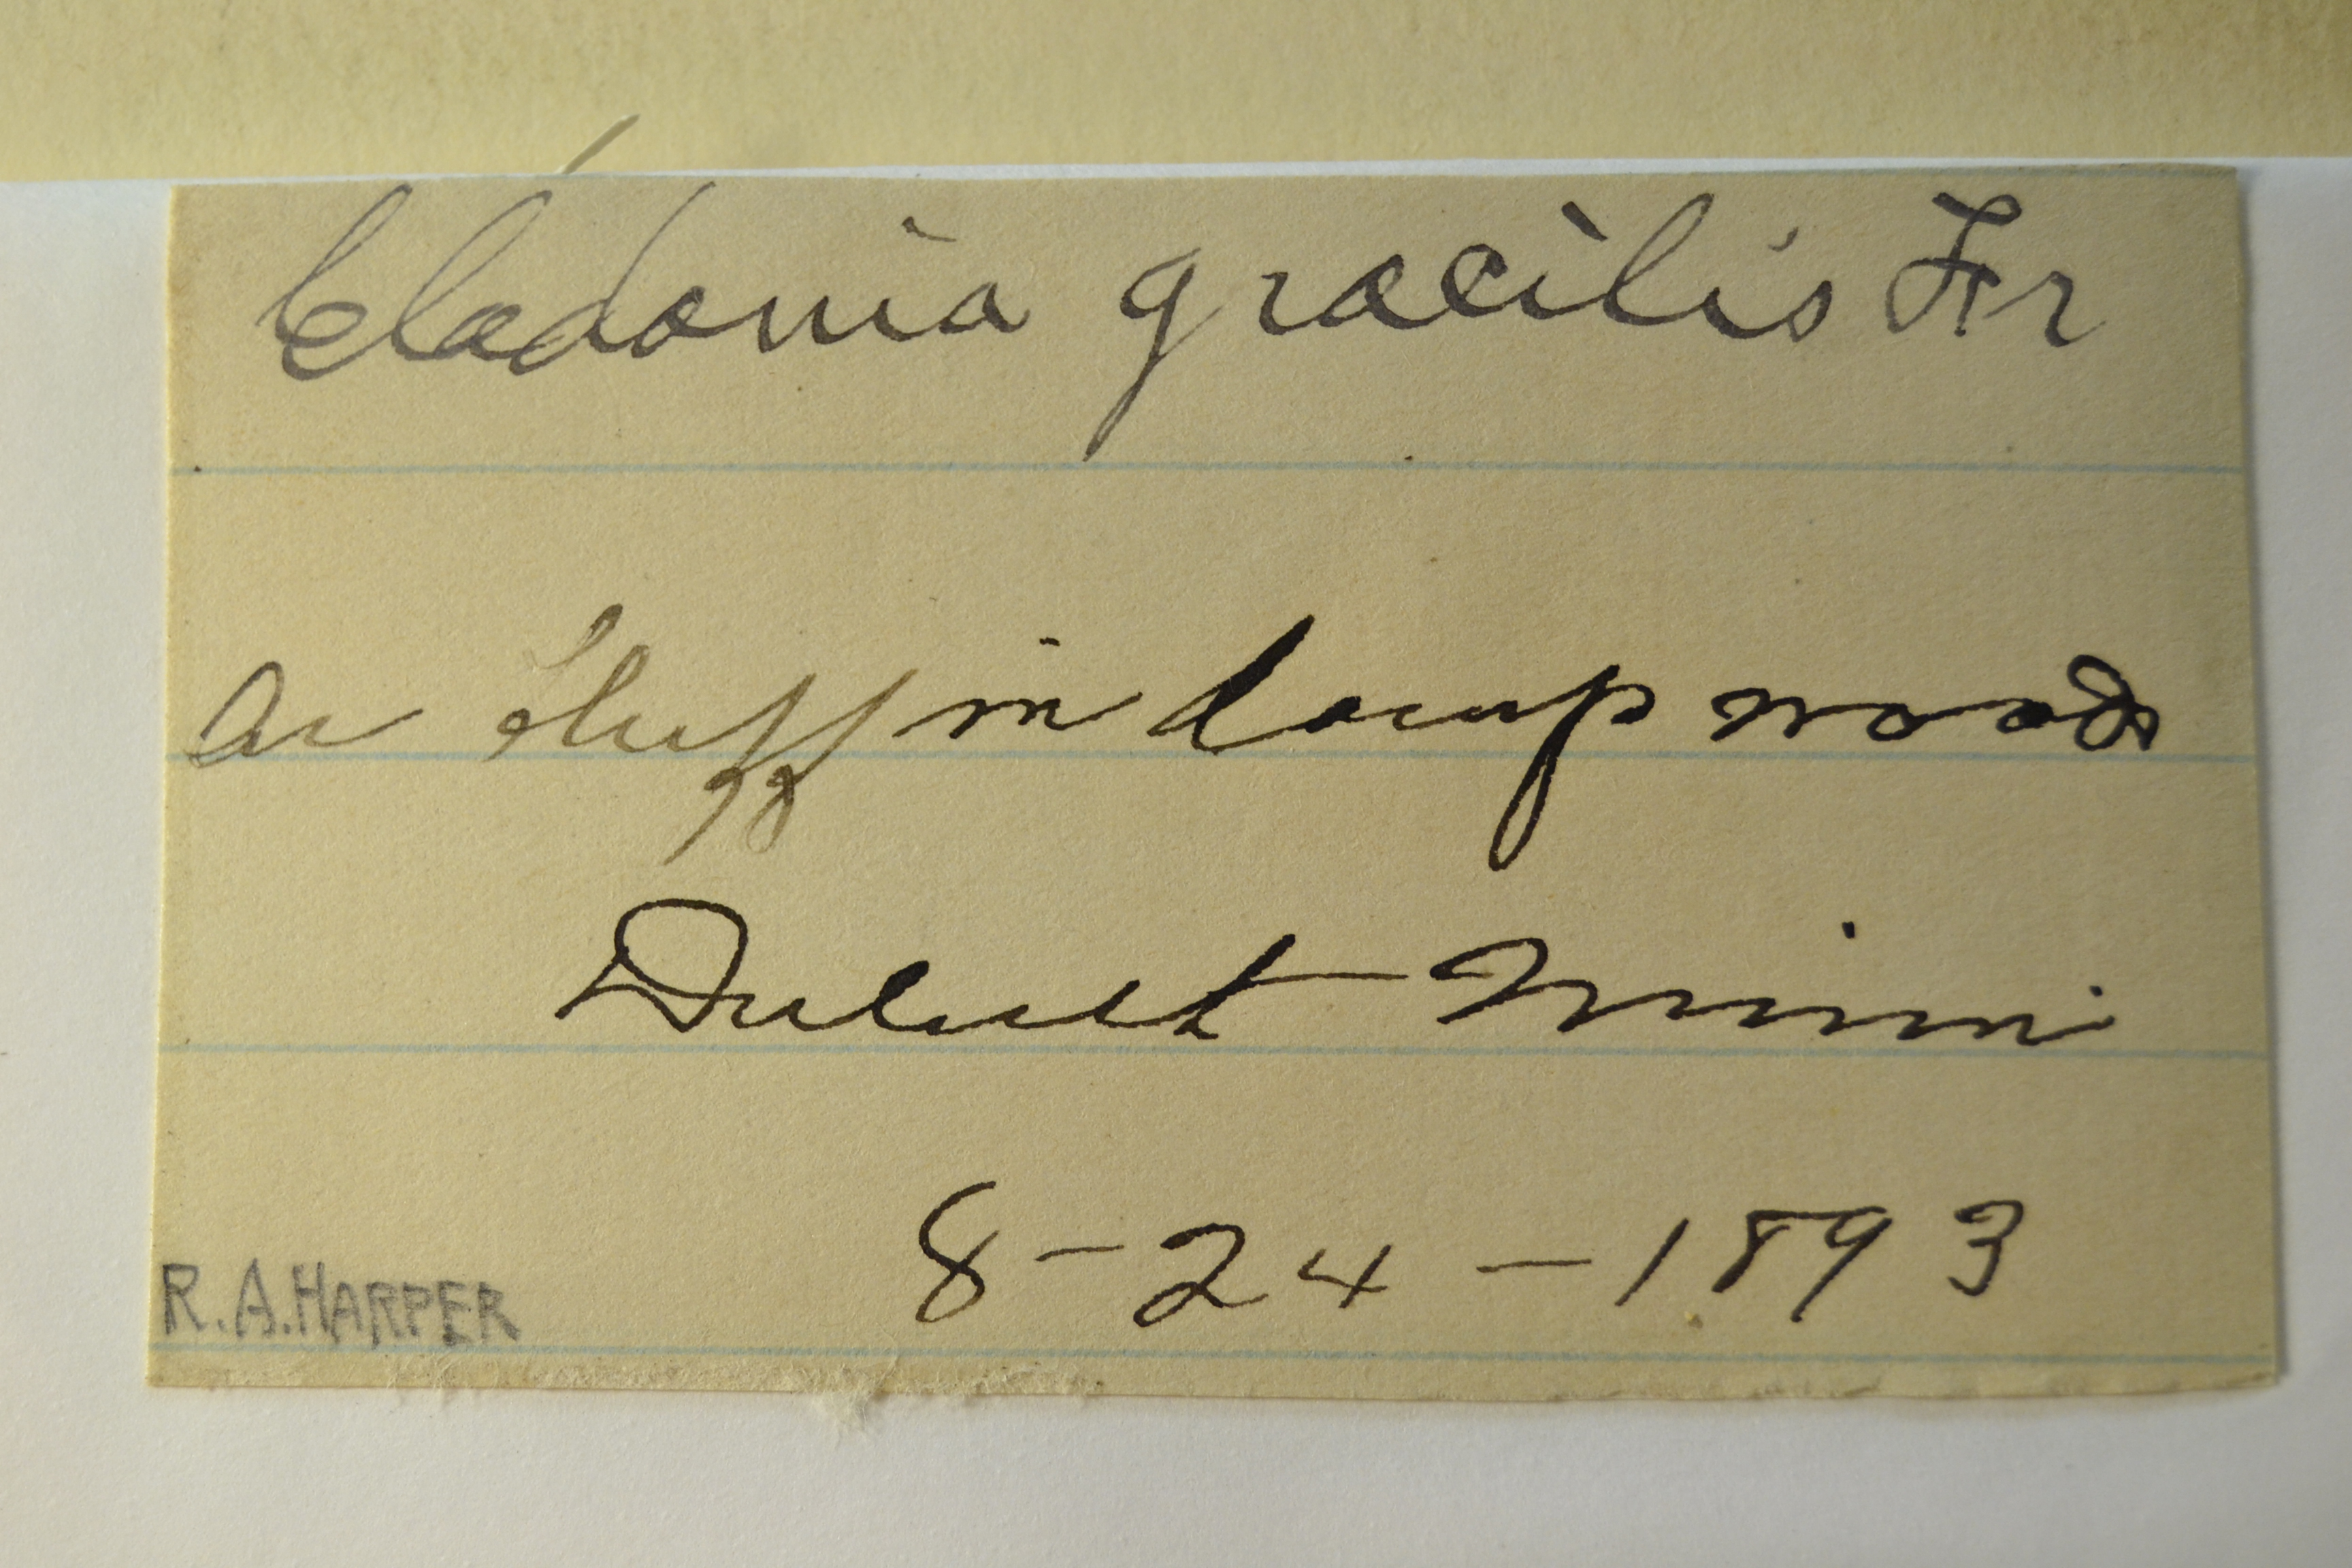 Cladonia gracilis Fr
On bluff in damp woods
Duluth Minn
8-24-1893
R.A.HARPER